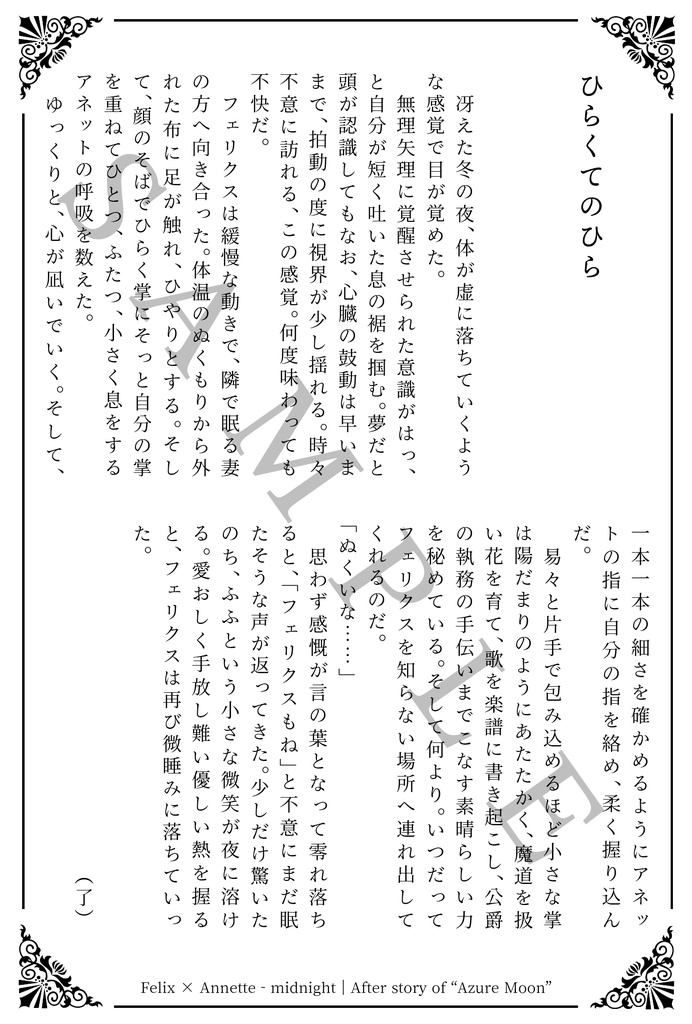 ひらくてのひら
冴えた冬の夜、体が虚に落ちていくよう
な感覚で目が覚めた。
無理矢理に覚醒させられた意識がはっ、
と自分が短く吐いた息の裾を掴む。夢だと
頭が認識してもなお、心臓の鼓動は早いま
まで、拍動の度に視界が少し揺れる。時々
不意に訪れる、この感覚。何度味わっても
不快だ。
フェリクスは緩慢な動きで、隣で眠る妻
の方へ向き合った。体温のぬくもりから外
れた布に足が触れ、ひやりとする。そし
て、顔のそばでひらく掌にそっと自分の掌
を重ねてひとつ、ふたつ、小さく息をする
アネットの呼吸を数えた。
ゆっくりと、心が凪いでいく。そして、
一本一本の細さを確かめるようにアネッ
トの指に自分の指を絡め、柔く握り込ん
だ。
易々と片手で包み込めるほど小さな掌
は陽だまりのようにあたたかく、魔道を扱
い花を育て、歌を楽譜に書き起こし、公爵
の執務の手伝いまでこなす素晴らしい力
を秘めている。そして何より。いつだって
フェリクスを知らない場所へ連れ出して
くれるのだ。
「ぬくいな……」
思わず感慨が言の葉となって零れ落ち
ると、「フェリクスもね」と不意にまだ眠
たそうな声が返ってきた。少しだけ驚いた
のち、ふふという小さな微笑が夜に溶け
る。愛おしく手放し難い優しい熱を握る
と、フェリクスは再び微睡みに落ちていっ
た。
（了）
SAMPLE
Felix × Annette - midnight | After story of “Azure Moon”